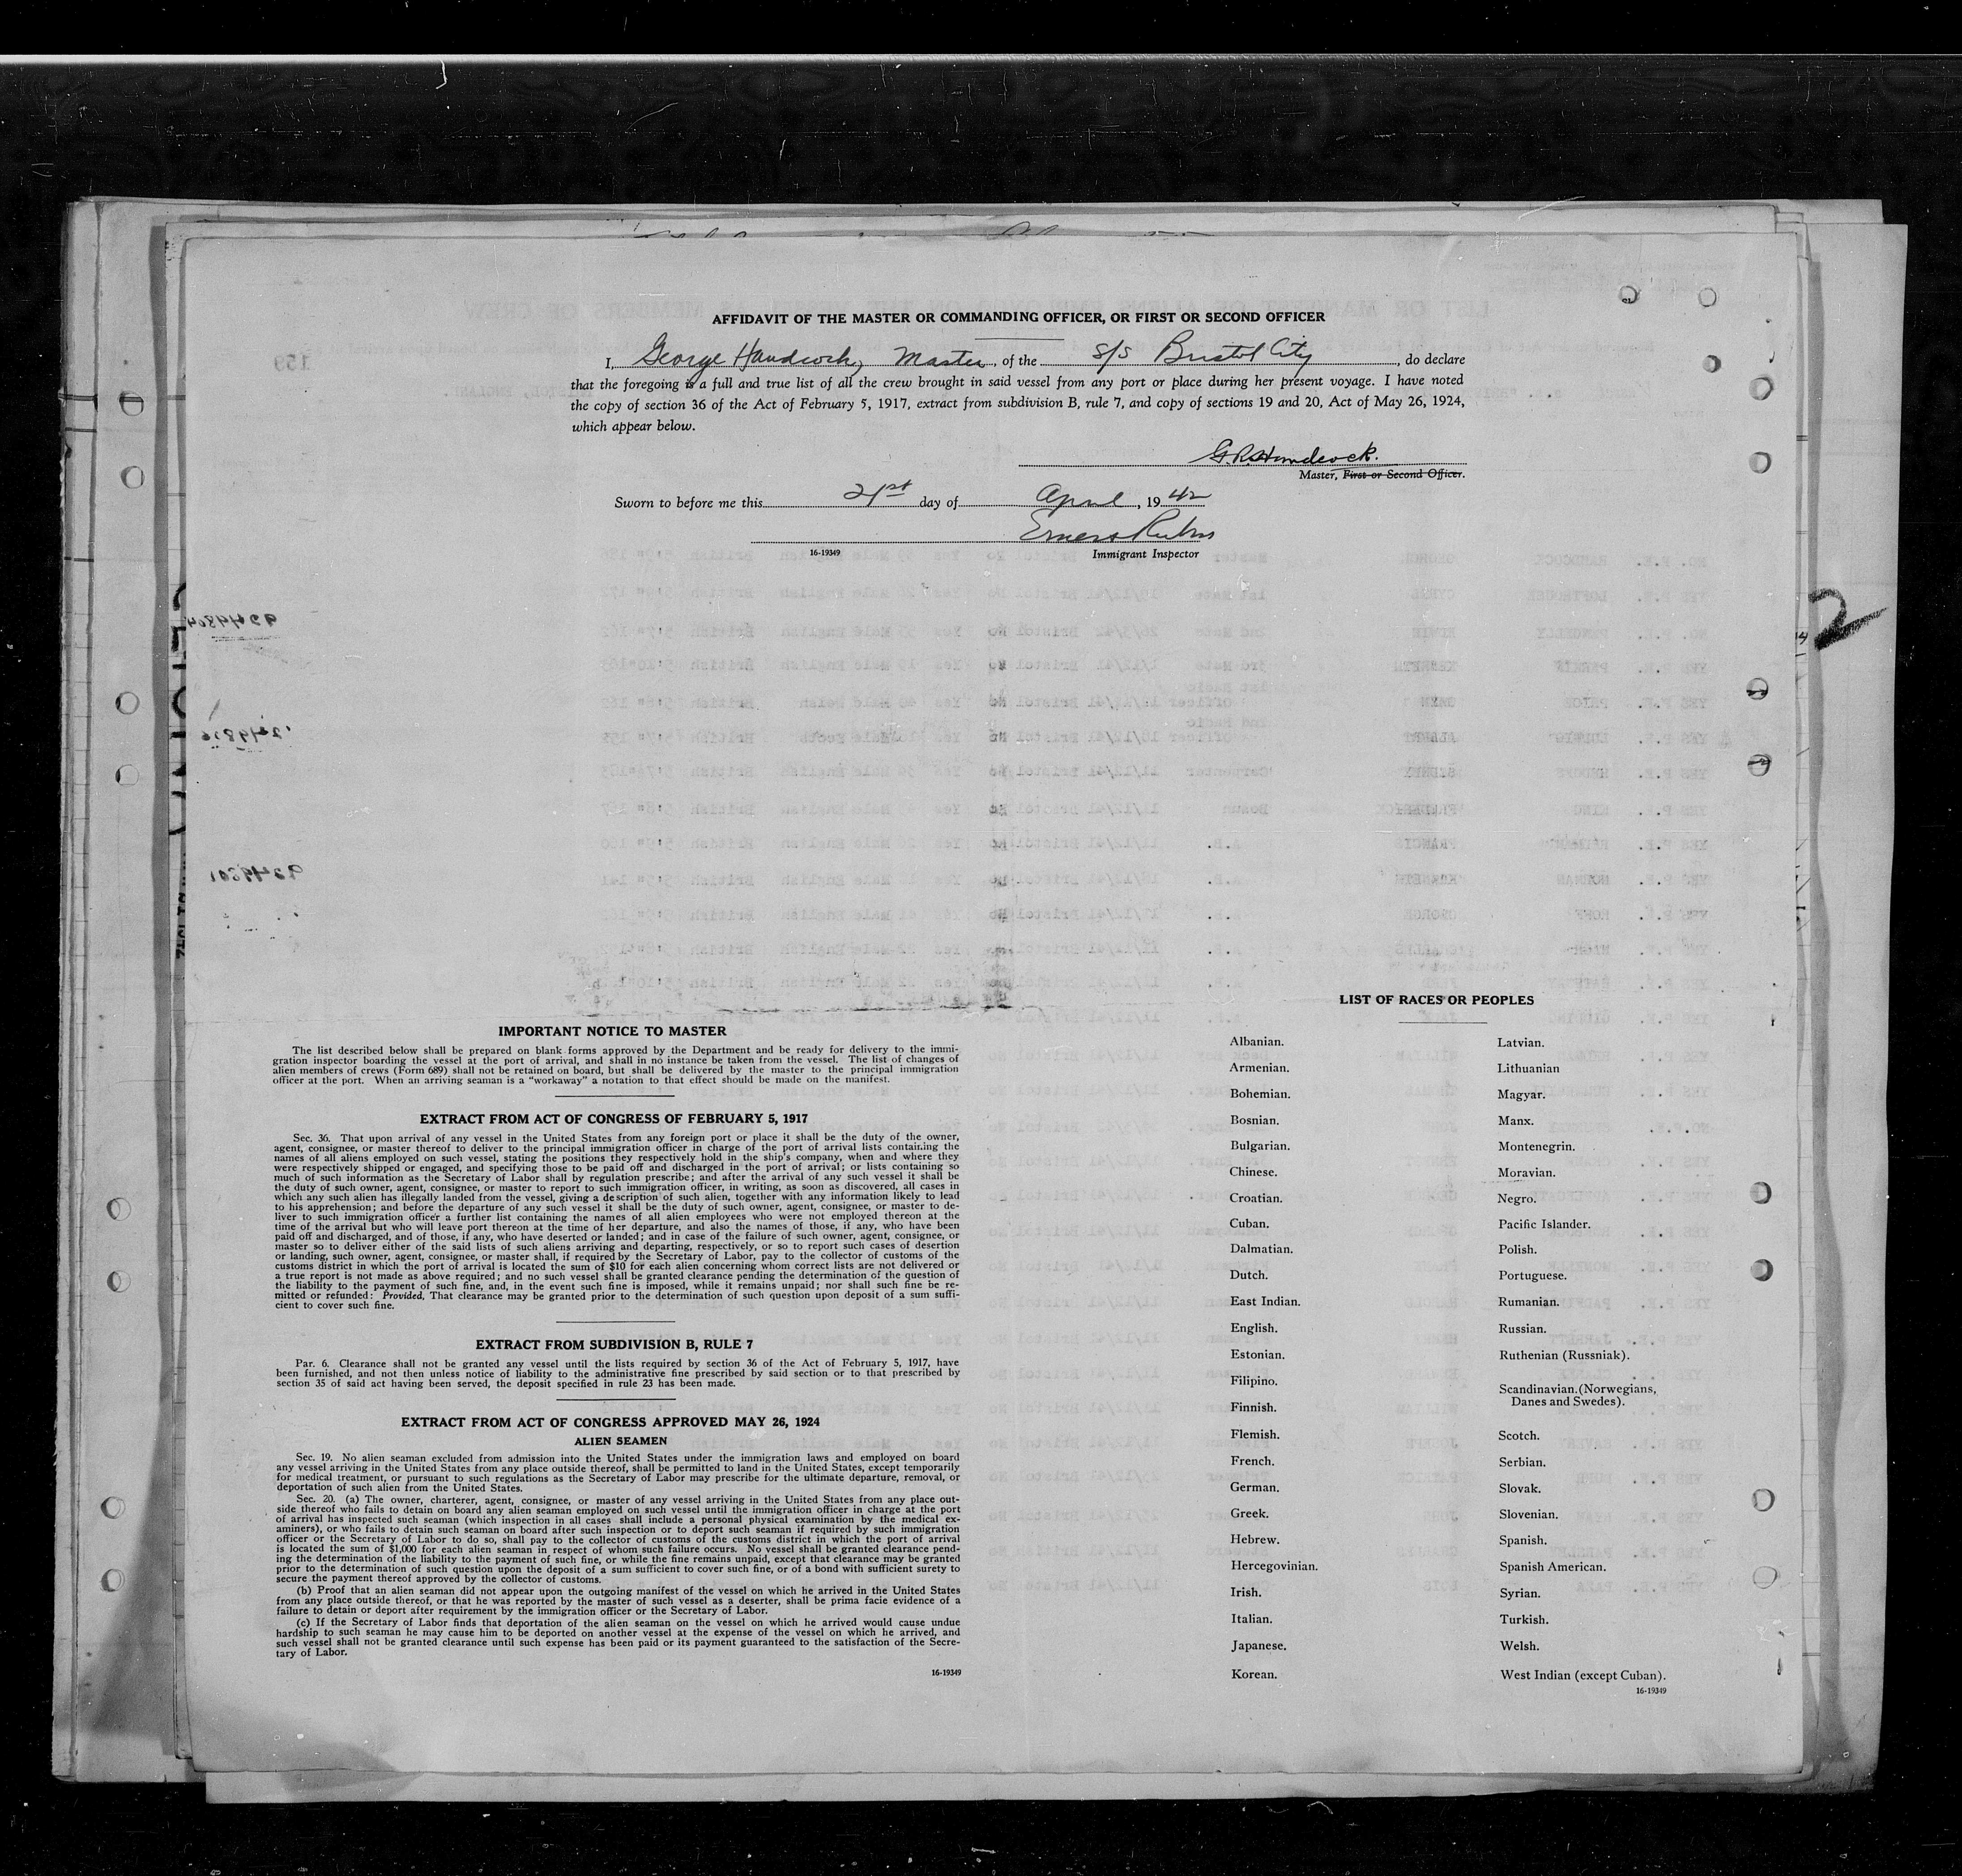 AFFIDAVIT OF THE MASTER OR COMMANDING OFFICER, OR FIRST OR SECOND OFFICER
I, George Handcock, Master, of the S/S Bristol City, do declare
that the foregoing is a full and true list of all the crew brought in said vessel from any port or place during her present voyage. I have noted
the copy of section 36 of the Act of February 5, 1917, extract from subdivision B, rule 7, and copy of sections 19 and 20, Act of May 26, 1924,
which appear below.
G.R. Handcock.
Master, First or Second Officer.
Sworn to before me this 21st day of April, 1942
16-19349
Immigrant Inspector
159
2
IMPORTANT NOTICE TO MASTER
The list described below shall be prepared on blank forms approved by the Department and be ready for delivery to the immi-
gration inspector boarding the vessel at the port of arrival, and shall in no instance be taken from the vessel. The list of changes of
alien members of crews (Form 689) shall not be retained on board, but shall be delivered by the master to the principal immigration
officer at the port. When an arriving seaman is a "workaway" a notation to that effect should be made on the manifest.
EXTRACT FROM ACT OF CONGRESS OF FEBRUARY 5, 1917
Sec. 36. That upon arrival of any vessel in the United States from any foreign port or place it shall be the duty of the owner,
agent, consignee, or master thereof to deliver to the principal immigration officer in charge of the port of arrival lists containing the
names of all aliens employed on such vessel, stating the positions they respectively hold in the ship's company, when and where they
were respectively shipped or engaged, and specifying those to be paid off and discharged in the port of arrival; or lists containing so
much of such information as the Secretary of Labor shall by regulation prescribe; and after the arrival of any such vessel it shall be
the duty of such owner, agent, consignee, or master to report to such immigration officer, in writing, as soon as discovered, all cases in
which any such alien has illegally landed from the vessel, giving a description of such alien, together with any information likely to lead
to his apprehension; and before the departure of any such vessel it shall be the duty of such owner, agent, consignee, or master to de-
liver to such immigration officer a further list containing the names of all alien employees who were not employed thereon at the
time of the arrival but who will leave port thereon at the time of her departure, and also the names of those, if any, who have been
paid off and discharged, and of those, if any, who have deserted or landed; and in case of the failure of such owner, agent, consignee, or
master so to deliver either of the said lists of such aliens arriving and departing, respectively, or so to report such cases of desertion
or landing, such owner, agent, consignee, or master shall, if required by the Secretary of Labor, pay to the collector of customs of the
customs district in which the port of arrival is located the sum of $10 for each alien concerning whom correct lists are not delivered or
a true report is not made as above required; and no such vessel shall be granted clearance pending the determination of the question of
the liability to the payment of such fine, and, in the event such fine is imposed, while it remains unpaid; nor shall such fine be re-
mitted or refunded: Provided, That clearance may be granted prior to the determination of such question upon deposit of a sum suffi-
cient to cover such fine.
EXTRACT FROM SUBDIVISION B, RULE 7
Par. 6. Clearance shall not be granted any vessel until the lists required by section 36 of the Act of February 5, 1917, have
been furnished, and not then unless notice of liability to the administrative fine prescribed by said section or to that prescribed by
section 35 of said act having been served, the deposit specified in rule 23 has been made.
EXTRACT FROM ACT OF CONGRESS APPROVED MAY 26, 1924
ALIEN SEAMEN
Sec. 19. No alien seaman excluded from admission into the United States under the immigration laws and employed on board
any vessel arriving in the United States from any place outside thereof, shall be permitted to land in the United States, except temporarily
for medical treatment, or pursuant to such regulations as the Secretary of Labor may prescribe for the ultimate departure, removal, or
deportation of such alien from the United States.
Sec. 20. (a) The owner, charterer, agent, consignee, or master of any vessel arriving in the United States from any place out-
side thereof who fails to detain on board any alien seaman employed on such vessel until the immigration officer in charge at the port
of arrival has inspected such seaman (which inspection in all cases shall include a personal physical examination by the medical ex-
aminers), or who fails to detain such seaman on board after such inspection or to deport such seaman if required by such immigration
officer or the Secretary of Labor to do so, shall pay to the collector of customs of the customs district in which the port of arrival
is located the sum of $1,000 for each alien seaman in respect of whom such failure occurs. No vessel shall be granted clearance pend-
ing the determination of the liability to the payment of such fine, or while the fine remains unpaid, except that clearance may be granted
prior to the determination of such question upon the deposit of a sum sufficient to cover such fine, or of a bond with sufficient surety to
secure the payment thereof approved by the collector of customs.
(b) Proof that an alien seaman did not appear upon the outgoing manifest of the vessel on which he arrived in the United States
from any place outside thereof, or that he was reported by the master of such vessel as a deserter, shall be prima facie evidence of a
failure to detain or deport after requirement by the immigration officer or the Secretary of Labor.
(c) If the Secretary of Labor finds that deportation of the alien seaman on the vessel on which he arrived would cause undue
hardship to such seaman he may cause him to be deported on another vessel at the expense of the vessel on which he arrived, and
such vessel shall not be granted clearance until such expense has been paid or its payment guaranteed to the satisfaction of the Secre-
tary of Labor.
16-19349
LIST OF RACES OR PEOPLES
Albanian.
Armenian.
Bohemian.
Bosnian.
Bulgarian.
Chinese.
Croatian.
Cuban.
Dalmatian.
Dutch.
East Indian.
English.
Estonian.
Filipino.
Finnish.
Flemish.
French.
German.
Greek.
Hebrew.
Hercegovinian.
Irish.
Italian.
Japanese.
Korean.
Latvian.
Lithuanian
Magyar.
Manx.
Montenegrin.
Moravian.
Negro.
Pacific Islander.
Polish.
Portuguese.
Rumanian.
Russian.
Ruthenian (Russniak).
Scandinavian.(Norwegians,
Danes and Swedes).
Scotch.
Serbian.
Slovak.
Slovenian.
Spanish.
Spanish American.
Syrian.
Turkish.
Welsh.
West Indian (except Cuban).
16-19349